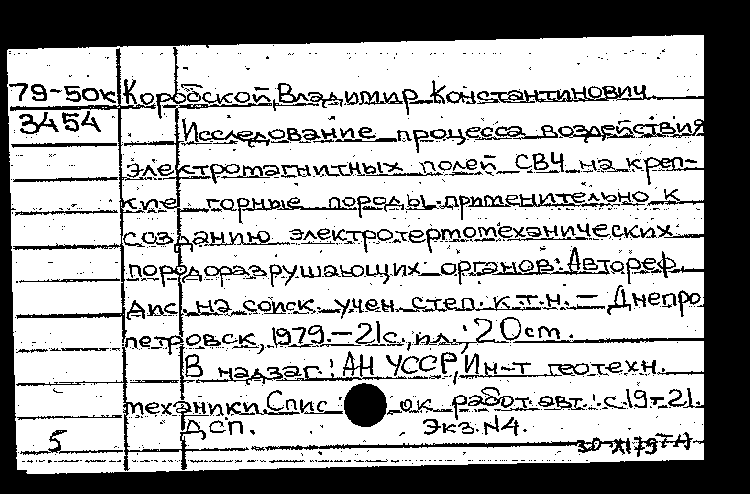 79-50к Коробской, Владимир Константинович
3454 Исследование процесса воздействия
электромагнитных полей СВЧ на креп-
кие горные породы применительно к
созданию электротермомеханических
породоразрушающих органов: Автореф.
дис. на соиск. учен. степ. к.т.н. — Днепро
петровск, 1979. — 21с., ил.; 20 см.
В надзаг.: АН УССР, Ин-т геотехн.
механики. Спис ок работ авт.: с.19-21.
ДСП. Экз. N4.
5